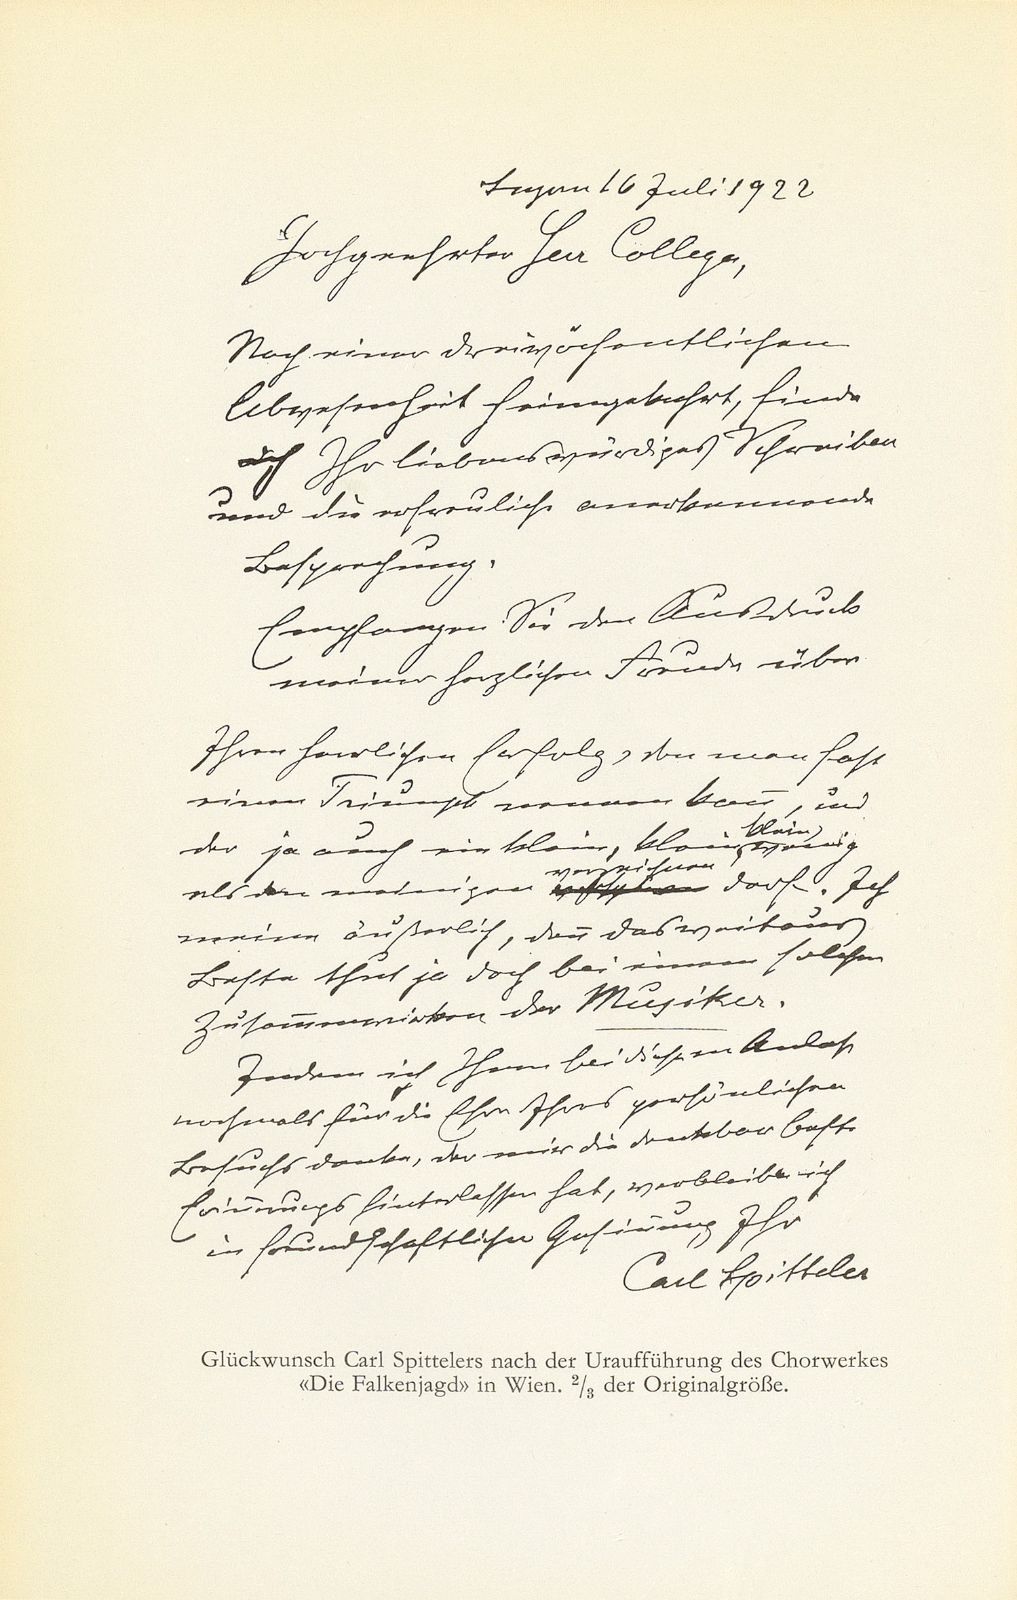 Luzern 16 Juli 1922
Hochgeehrter Herr College,
Nach einer dreiwöchentlichen
Abwesenheit heimgekehrt, finde
ich Ihr liebenswürdiges Schreiben
und die erfreuliche anerkennende
Besprechung.
Empfangen Sie den Ausdruck
meiner herzlichen Freude über
Ihren herrlichen Erfolg, den man fast
einen Triumph nennen kan̄, und
der ja auch ein klein, klein, klein wenig
als den meinigen verzeichnen darf. Ich
meine äußerlich, den̄ das weitaus
Beste thut ja doch bei einem solchen
Zusam̄enwirken der Musiker.
Indem ich Ihnen bei diesem Anlaß
nochmals für die Ehre Ihres persönlichen
Besuchs danke, der mir die denkbar beste
Erin̄rung hinterlassen hat, verbleibe ich
in freundschaftlicher Gesin̄ung Ihr
Carl Spitteler
Glückwunsch Carl Spittelers nach der Uraufführung des Chorwerkes
«Die Falkenjagd» in Wien. 2/3 der Originalgröße.